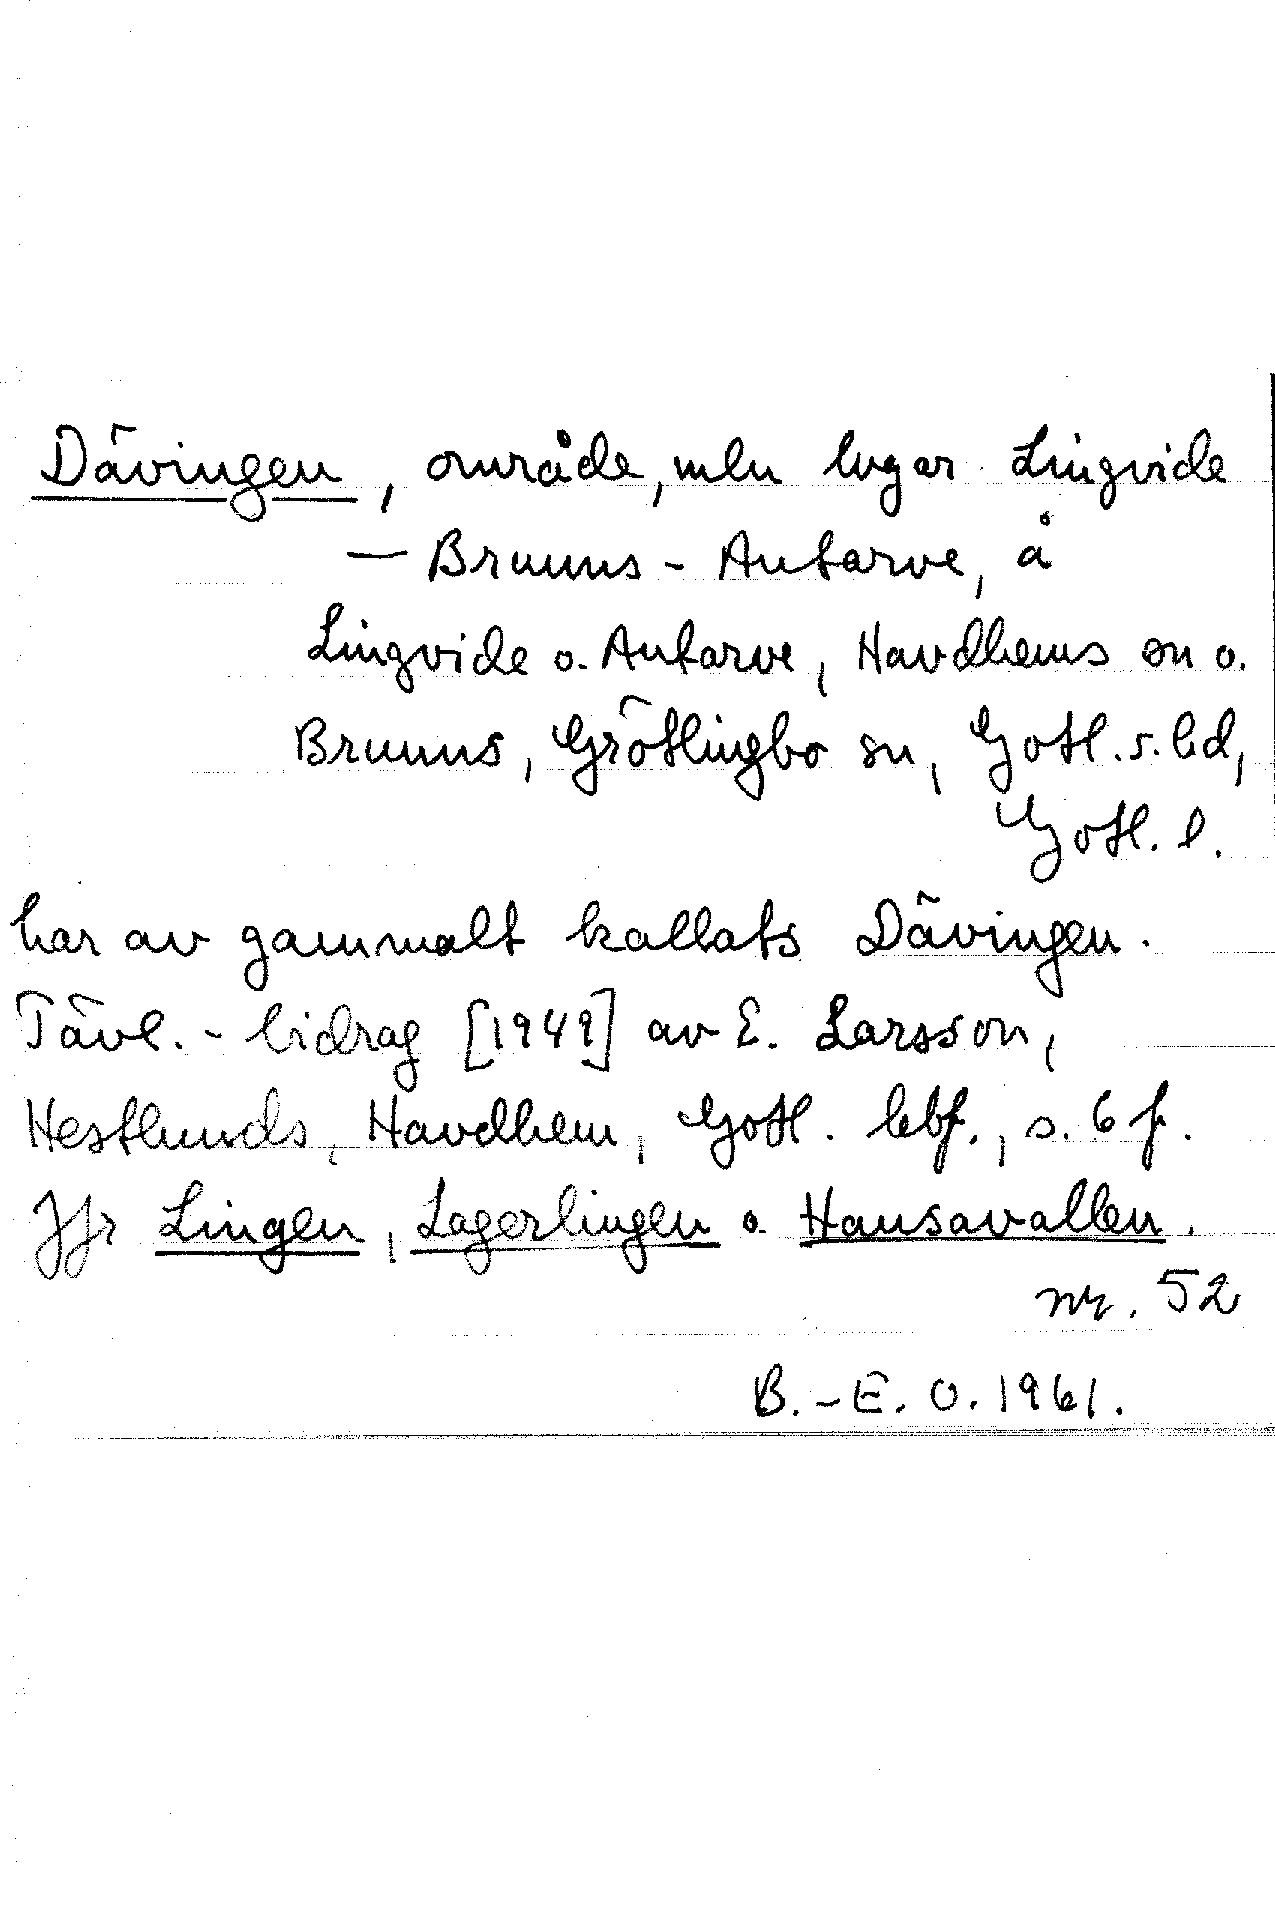 Dävingen, område, mln vägar Lingvide
— Brunns - Autarve, å
Lingvide o. Autarve, Havdhems sn o.
Brunns, Grötlingbo sn, Gotl. s. hd,
Gotl. l.
har av gammalt kallats Dävingen.
Tävl.-bidrag [1949] av E. Larsson,
Hestlunds, Havdhem, Gotl. lbf., s. 6 f.
Jfr Lingen, Lagerlingen o. Hausavallen.
nr. 52
B.-E. O. 1961.